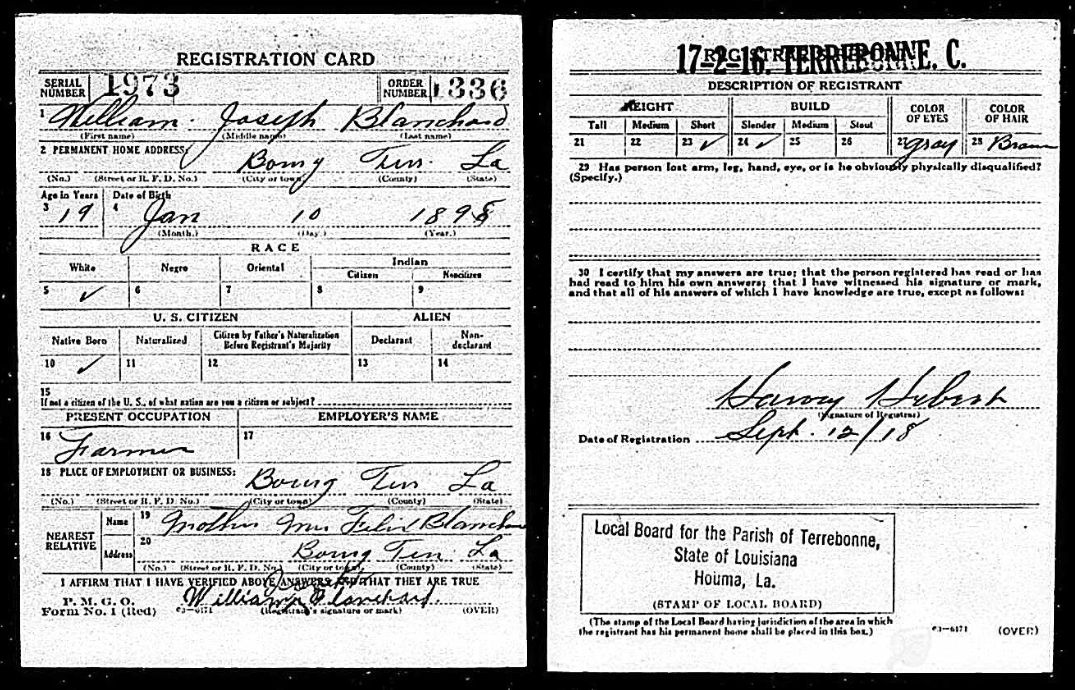 REGISTRATION CARD
SERIAL NUMBER 1973 ORDER NUMBER 1336
1 William Joseph Blanchard
(First name) (Middle name) (Last name)
2 PERMANENT HOME ADDRESS:
Bourg Terr. La
(No.) (Street or R. F. D. No.) (City or town) (County) (State)
Age in Years Date of Birth
3 19 4 Jan 10 1898
(Month.) (Day.) (Year.)
RACE
White Negro Oriental Indian
Citizen Noncitizen
5 ✓ 6 7 8 9
U. S. CITIZEN ALIEN
Native Born Naturalized Citizen by Father's Naturalization Before Registrant's Majority Declarant Non-declarant
10 ✓ 11 12 13 14
15
If not a citizen of the U. S., of what nation are you a citizen or subject?
PRESENT OCCUPATION EMPLOYER'S NAME
16 Farmer 17
18 PLACE OF EMPLOYMENT OR BUSINESS:
Bourg Terr La
(No.) (Street or R. F. D. No.) (City or town) (County) (State)
NEAREST RELATIVE
Name 19 Mother Mrs Felix Blanchard
Address 20 Bourg Terr. La
(No.) (Street or R. F. D. No.) (City or town) (County) (State)
I AFFIRM THAT I HAVE VERIFIED ABOVE ANSWERS AND THAT THEY ARE TRUE
P. M. G. O.
Form No. 1 (Red) 03—6171 William Joseph Blanchard.
(Registrant's signature or mark) (OVER)
REGISTRAR'S
17-2-16. TERREBONNE. C.
DESCRIPTION OF REGISTRANT
HEIGHT BUILD COLOR OF EYES COLOR OF HAIR
Tall Medium Short Slender Medium Stout
21 22 23 ✓ 24 ✓ 25 26 27 Gray 28 Brown
29 Has person lost arm, leg, hand, eye, or is he obviously physically disqualified?
(Specify.)
30 I certify that my answers are true; that the person registered has read or has
had read to him his own answers; that I have witnessed his signature or mark,
and that all of his answers of which I have knowledge are true, except as follows:
Harvey Hebert
(Signature of Registrar)
Date of Registration Sept. 12/18
Local Board for the Parish of Terrebonne,
State of Louisiana
Houma, La.
(STAMP OF LOCAL BOARD)
(The stamp of the Local Board having jurisdiction of the area in which
the registrant has his permanent home shall be placed in this box.)
03—6171 (OVER)